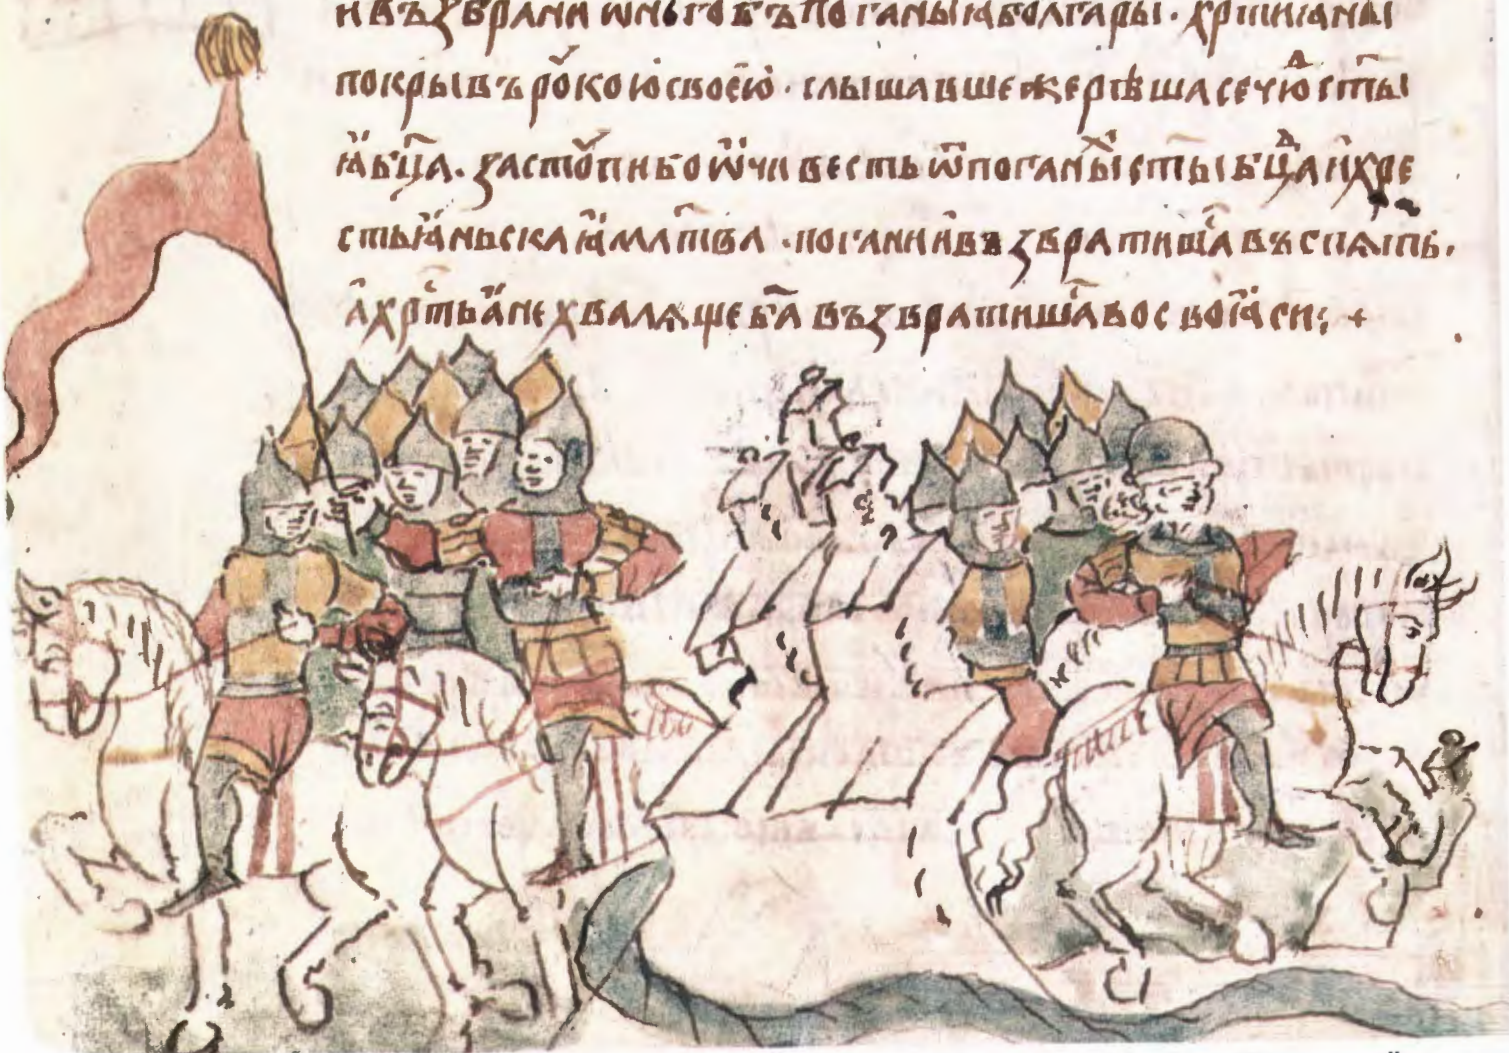 и възбрани ѿ много бъ поганыꙗ болгары · хрт҃иꙗны
покрывъ рꙋкою своею · слышавше же рѣша се чю҃ ст҃ы
ꙗ бц҃а · застꙋпи бо ѿчивесть ѿ поганы ст҃ыꙗ бц҃а и хре
стьꙗньскаꙗ мл҃тва · погании възвратишаⷭ въспѧть ·
а хрⷭ҇тьꙗне хвалѧще ба҃ възвратишаⷭ во своꙗси ⁘ +